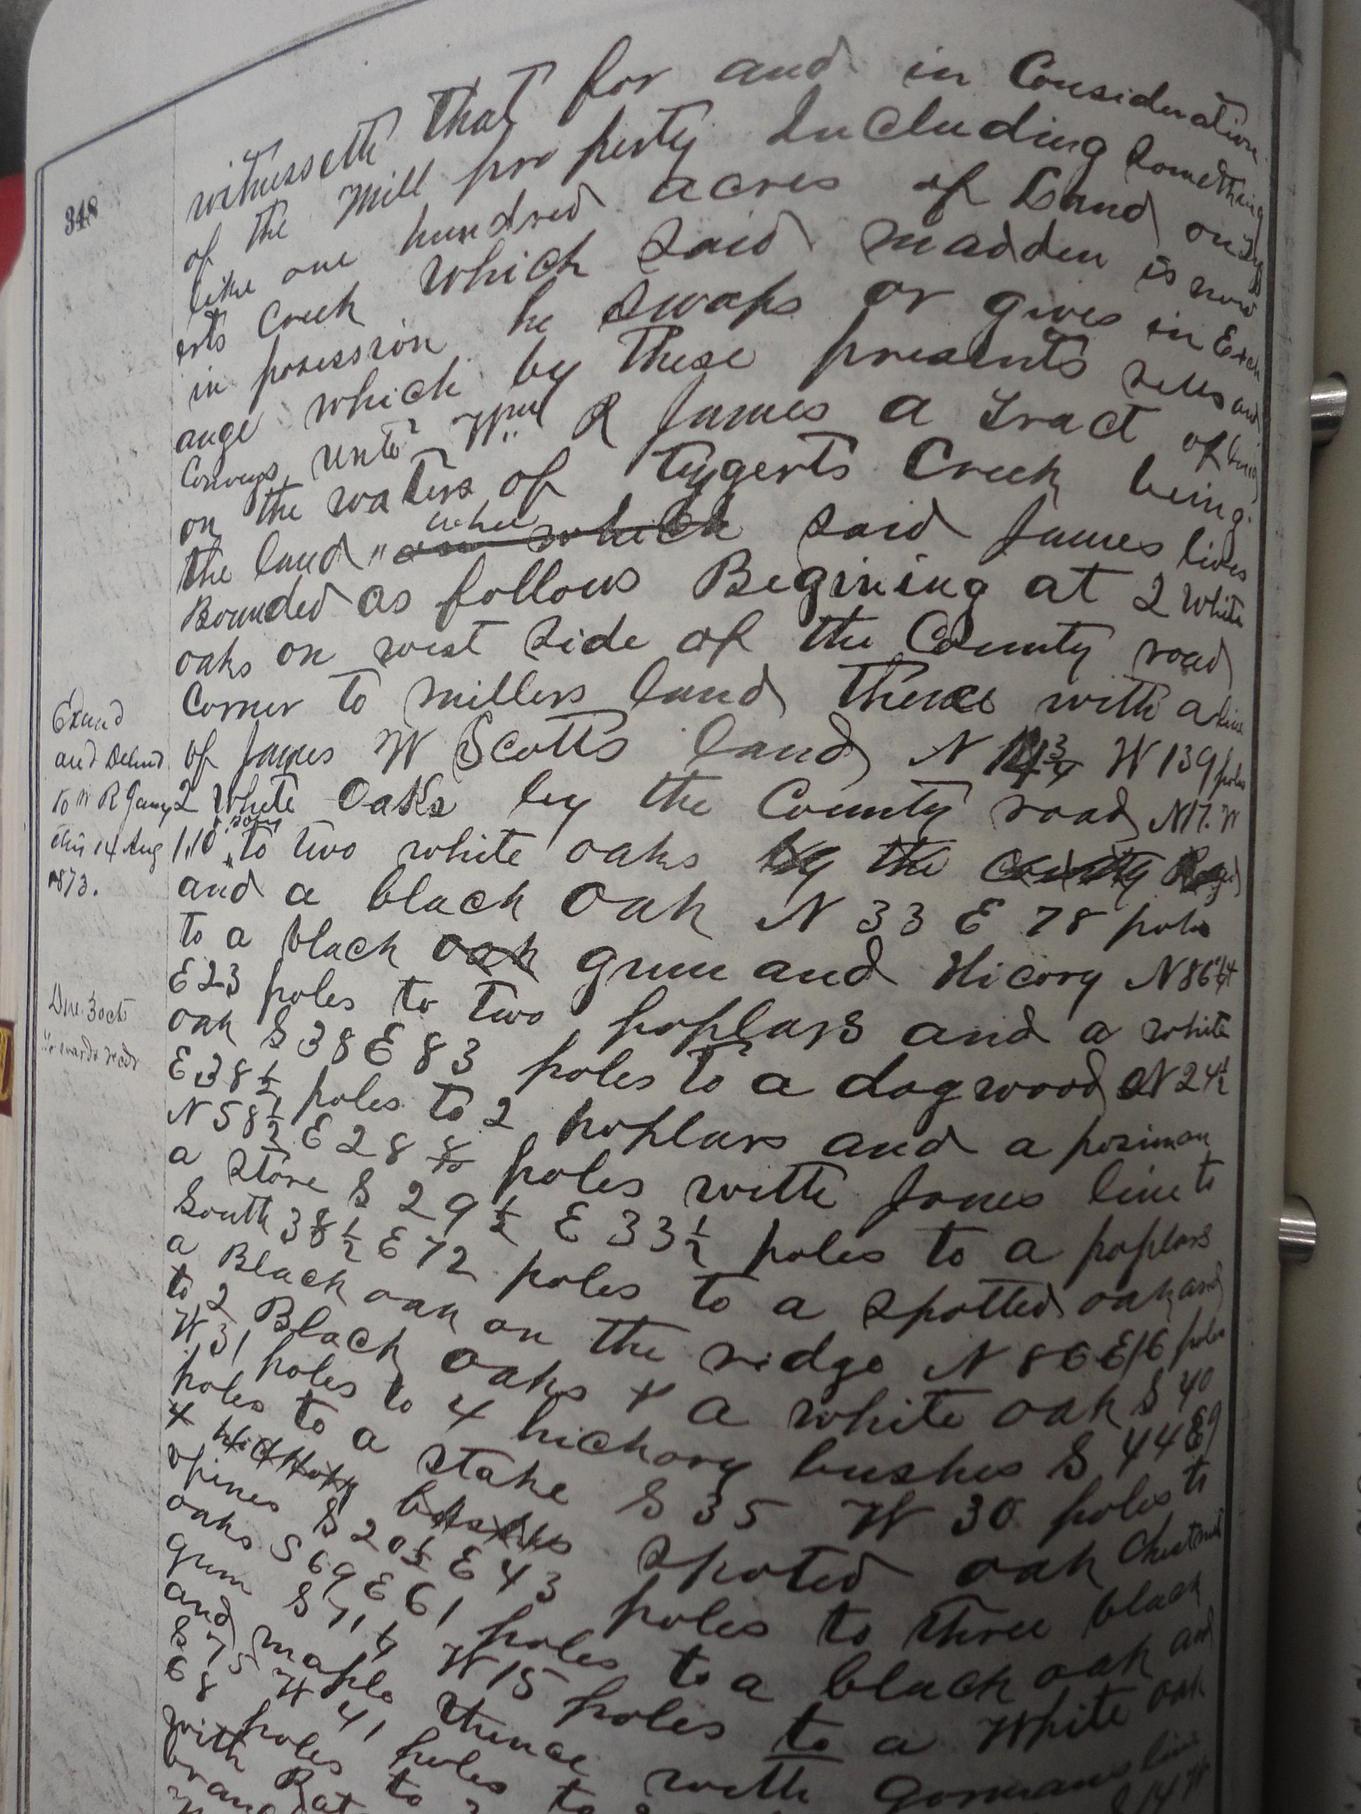 348
witnesseth that for and in Consideration
of the Mill property Including something
like one hundred acres of Land on Tygg
erts Creek which said Madden is now
in posession he swaps or gives in Exch
ange which by these presents sells and
Conveys unto Wm R James a Tract of land
on the waters of Tygerts Creek being
the land " where on which said James lives
Bounded as follows Begining at 2 White
oaks on west side of the County road
Corner to Millers land thence with a line
of James W Scotts land N 14 3/4 W 139 poles
2 White Oaks by the County road N 17. W
110 poles to two white oaks by the County Road
and a black oak N 33 E 78 poles
to a black oak gum and Hicory N 86 1/4
E 23 poles to two poplars and a white
oak S 38 E 83 poles to a dogwood N 24 1/2
E 38 1/2 poles to 2 poplars and a posimon
N 58 1/2 E 28 8/10 poles with Jones line to
a stone S 29 1/2 E 33 1/2 poles to a poplars
South 38 1/2 E 72 poles to a spotted oak and
a Black oak on the ridge N 86 E 16 poles
to 2 Black oaks & a white oak S 40
W 31 poles to 4 hickory bushes S 44 E 9
poles to a stake S 35 W 30 poles to
4 hickory bushes spoted oak Chestnut
opines S 20 1/2 E 43 poles to three black
oaks S 69 E 61 poles to a black oak and
gum S 71 1/4 W 15 poles to a White oak
and maple thence with Gormans line
S 75 W 41 poles to
68 poles to
with
Examd
and Delivd
to W R James
this 14 Aug
1873.
Due 30 cts